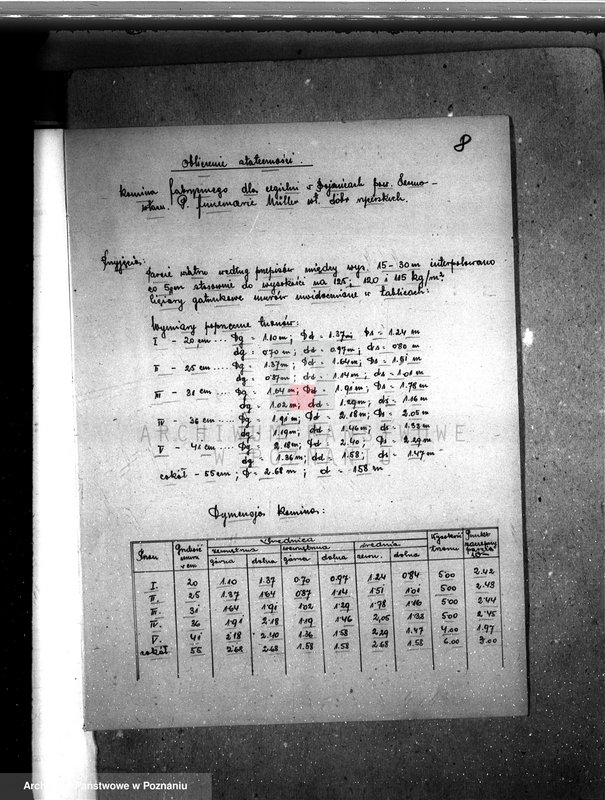 8
Obliczenie stateczności.
komina fabrycznego dla cegielni w pow.
P. Müller wł. dóbr rycerskich.
Przyjęcia:
Parcie wiatru według przepisów między wys. 15-30 m interpolowano
co 5 gm stosownie do wysokości na 125, 120 i 115 kg/m²
Ciężary gatunkowe murów uwidocznione w tablicach:
Wymiary poprzeczne trzonów:
I - 20 cm .... Dg = 1.10 m; Dd = 1.37 m; Ds = 1.24 m
dg = 0.70 m; dd = 0.97 m; ds = 0.80 m
II - 25 cm .... Dg = 1.37 m; Dd = 1.64 m; Ds = 1.51 m
dg = 0.87 m; dd = 1.14 m; ds = 1.01 m
III - 31 cm .... Dg = 1.64 m; Dd = 1.91 m; Ds = 1.78 m
dg = 1.02 m; dd = 1.29 m; ds = 1.16 m
IV - 36 cm .... Dg = 1.91 m; Dd = 2.18 m; Ds = 2.05 m
dg = 1.19 m; dd = 1.46 m; ds = 1.33 m
V - 41 cm .... Dg = 2.18 m; Dd = 2.40; Ds = 2.29 m
dg = 1.36 m; dd = 1.58; ds = 1.47 m
cokół - 55 cm; D = 2.68 m; d = 1.58 m
ARCHIWUM PAŃSTWOWE
W POZNANIU
Dymensja komina:
Trzon Grubość muru w cm Średnica Wysokość trzonu Punkt
zewnętrzna wewnętrzna średnia
górna dolna górna dolna zewn. dolna
I. 20 1.10 1.37 0.70 0.97 1.24 0.84 5.00 2.42
II. 25 1.37 1.64 0.87 1.14 1.51 1.01 5.00 2.43
III. 31 1.64 1.91 1.02 1.29 1.78 1.16 5.00 2.44
IV. 36 1.91 2.18 1.19 1.46 2.05 1.32 5.00 2.45
V. 41 2.18 2.40 1.36 1.58 2.29 1.47 4.00 1.97
cokół 55 2.68 2.68 1.58 1.58 2.68 1.58 6.00 3.00
Archiwum Państwowe w Poznaniu